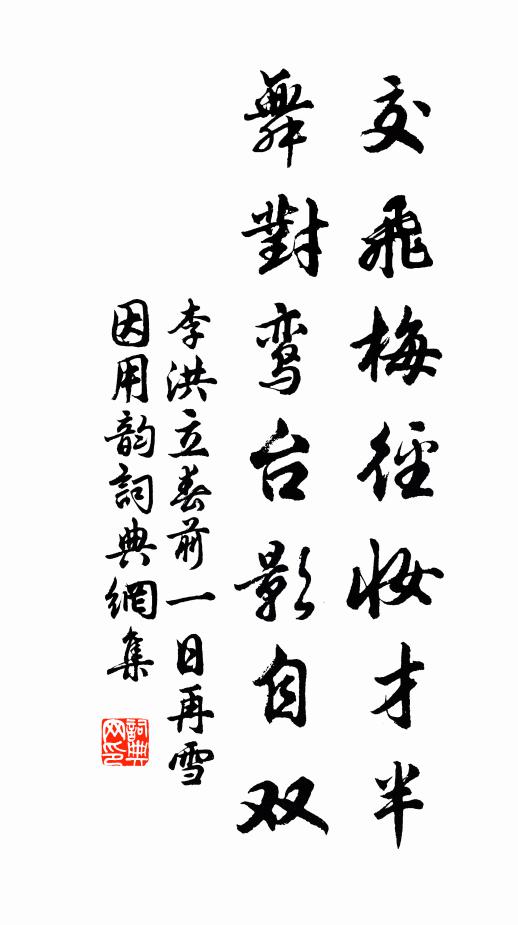 交飛梅徑妆才半
舞對鸾台影自双
李洪立春前一日再雪
因用韵詞典網集
詞典
网印